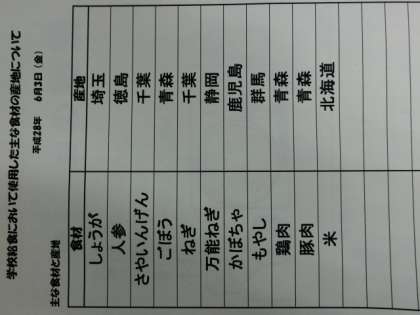 学校給食において使用した主な食材の産地について
平成28年 6月3日(金)
主な食材と産地
食材 産地
しょうが 埼玉
人参 徳島
さやいんげん 千葉
ごぼう 青森
ねぎ 千葉
万能ねぎ 静岡
かぼちゃ 鹿児島
もやし 群馬
鶏肉 青森
豚肉 青森
米 北海道